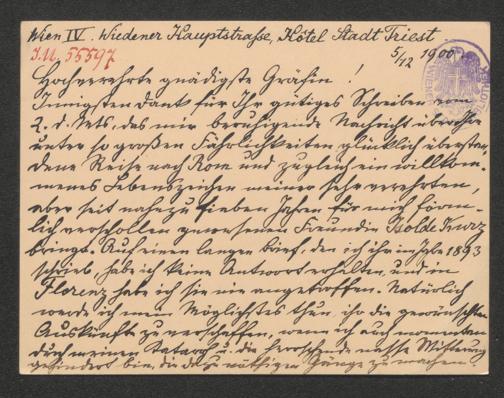 Wien IV. Wiedener Hauptstrasse, Hôtel Stadt Triest
5/12 1900
I.N. 55597
Hochverehrte gnädigste Gräfin!
Innigsten Dank für Ihr gütiges Schreiben vom
2. d. Mts., das mir beruhigende Nachricht über Ihre
unter so großen Fährlichkeiten glücklich überstan-
dene Reise nach Rom und zugleich ein willkom-
menes Lebenszeichen meiner sehr verehrten,
aber seit nahezu sieben Jahren für mich förm-
lich verschollen gewesenen Freundin Isolde Kurz
bringt. Auf einen langen Brief, den ich ihr im Jahre 1893
schrieb, habe ich keine Antwort erhalten, und in
Florenz habe ich sie nie angetroffen. Natürlich
werde ich mein Möglichstes thun, ihr die gewünschten
Auskünfte zu verschaffen, wenn ich auch momentan
durch meinen Katarrh u. die herrschende nasse Witterung
gehindert bin, die dazu nöthigen Gänge zu machen.